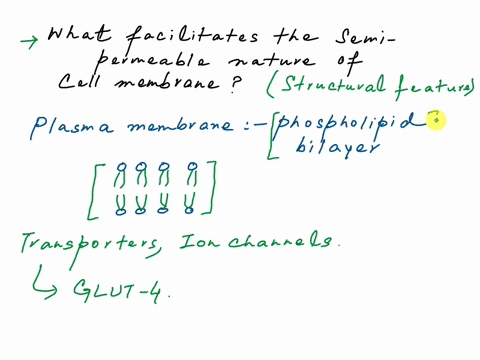 → What facilitates the Semi-
permeable nature of
Cell membrane? (Structural feature)
Plasma membrane :- [phospholipid]
bilayer
Transporters, Ion channels.
↳ GLUT-4.